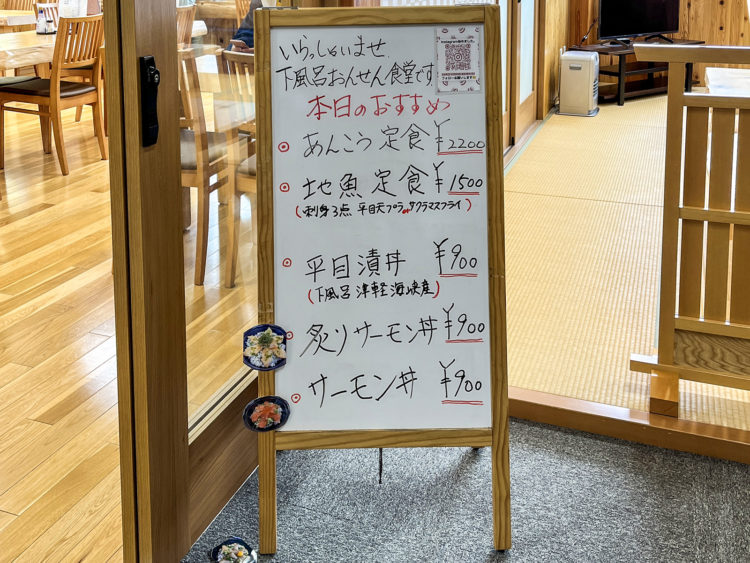 いらっしゃいませ
下風呂おんせん食堂です
本日のおすすめ
あんこう定食 ¥2200
地魚定食 ¥1500
(刺身3点 平目天プラorサクラマスフライ)
平目漬丼 ¥900
(下風呂津軽海峡産)
炙りサーモン丼 ¥900
サーモン丼 ¥900